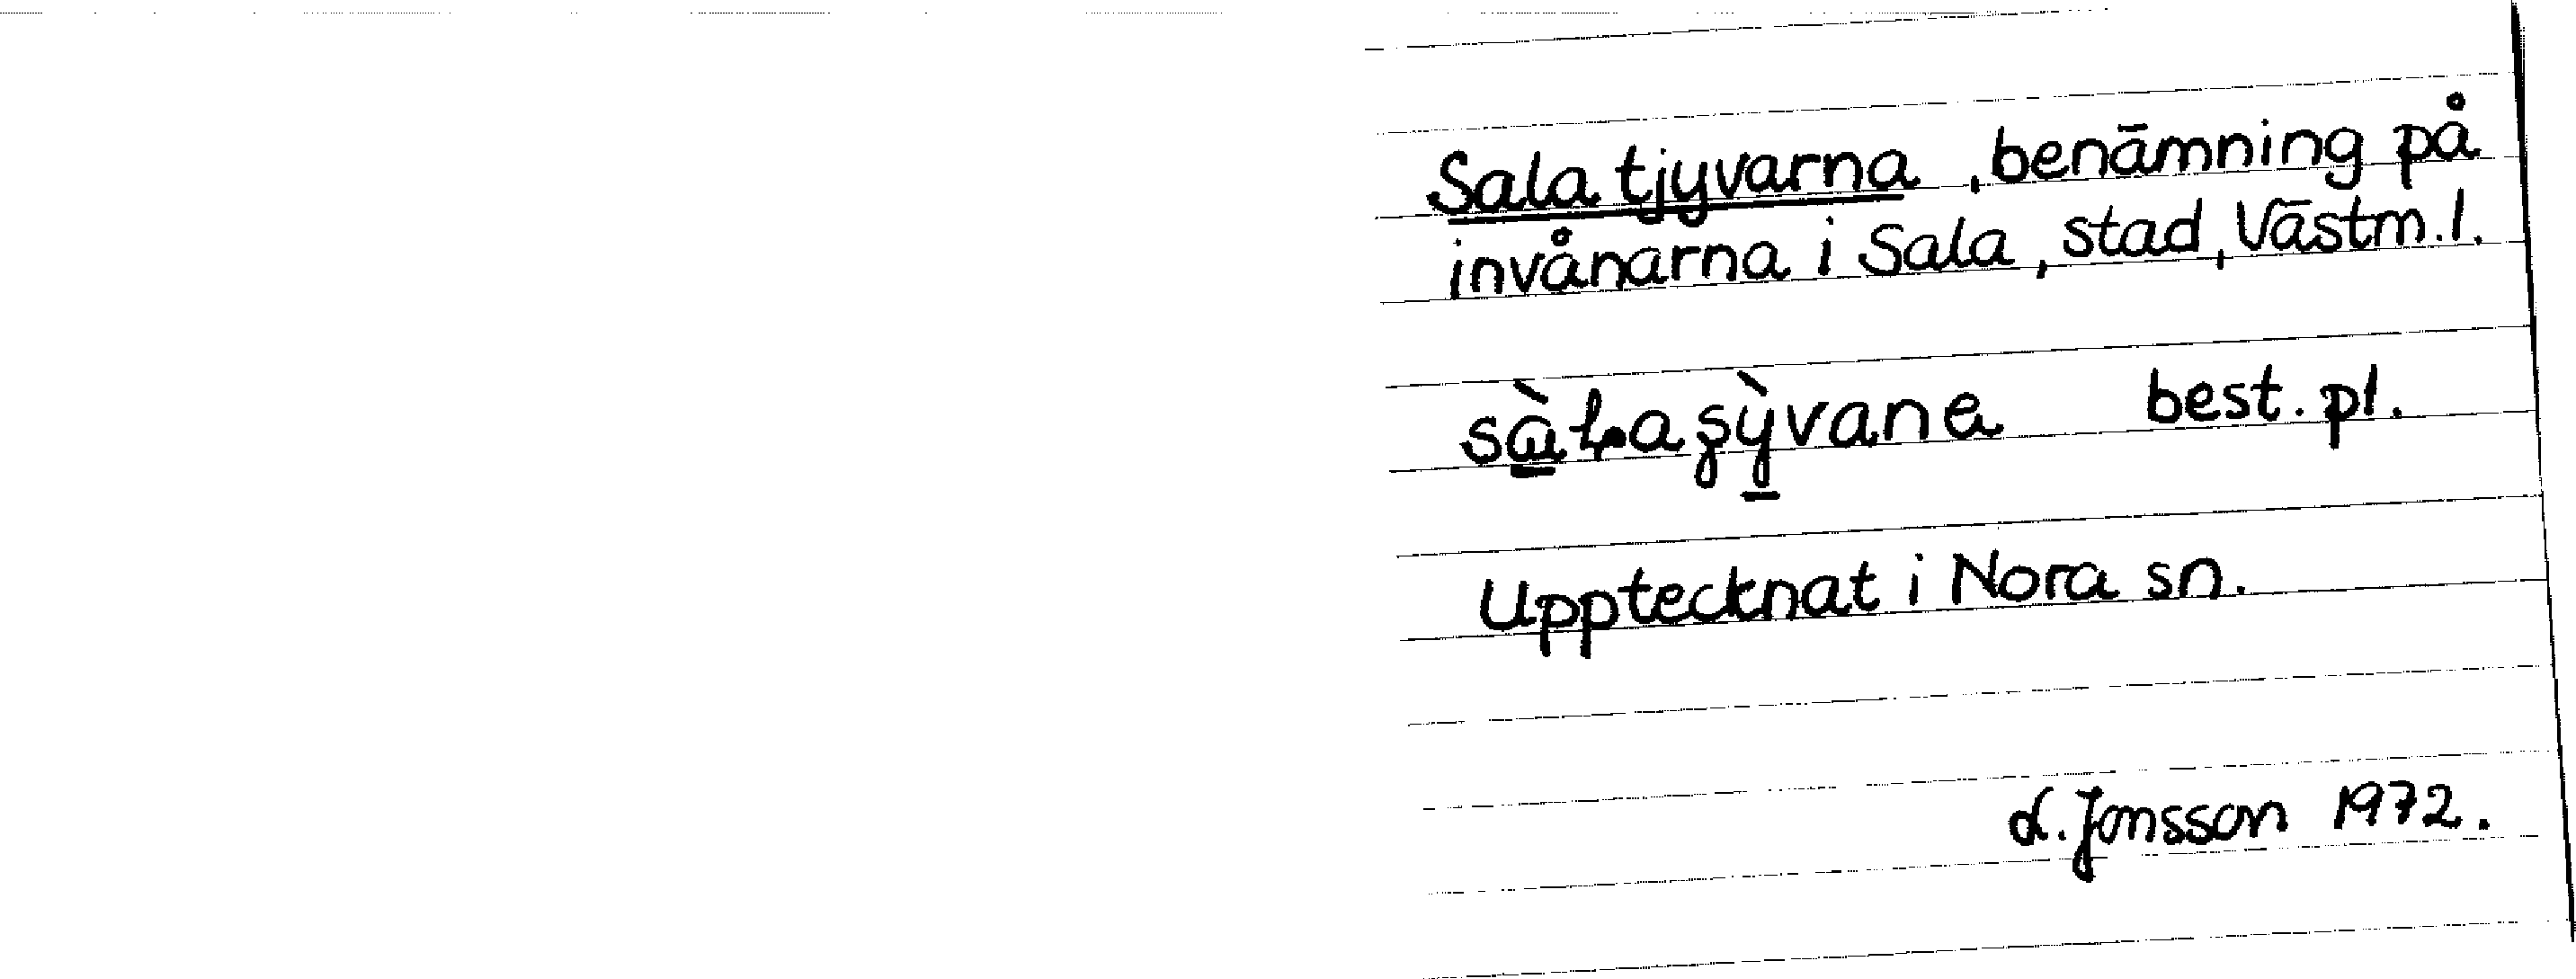 Sala tjyvarna, benämning på
invånarna i Sala, stad, Västm.l.
sàłaşỳvana best. pl.
Upptecknat i Nora sn.
L. Jonsson 1972.